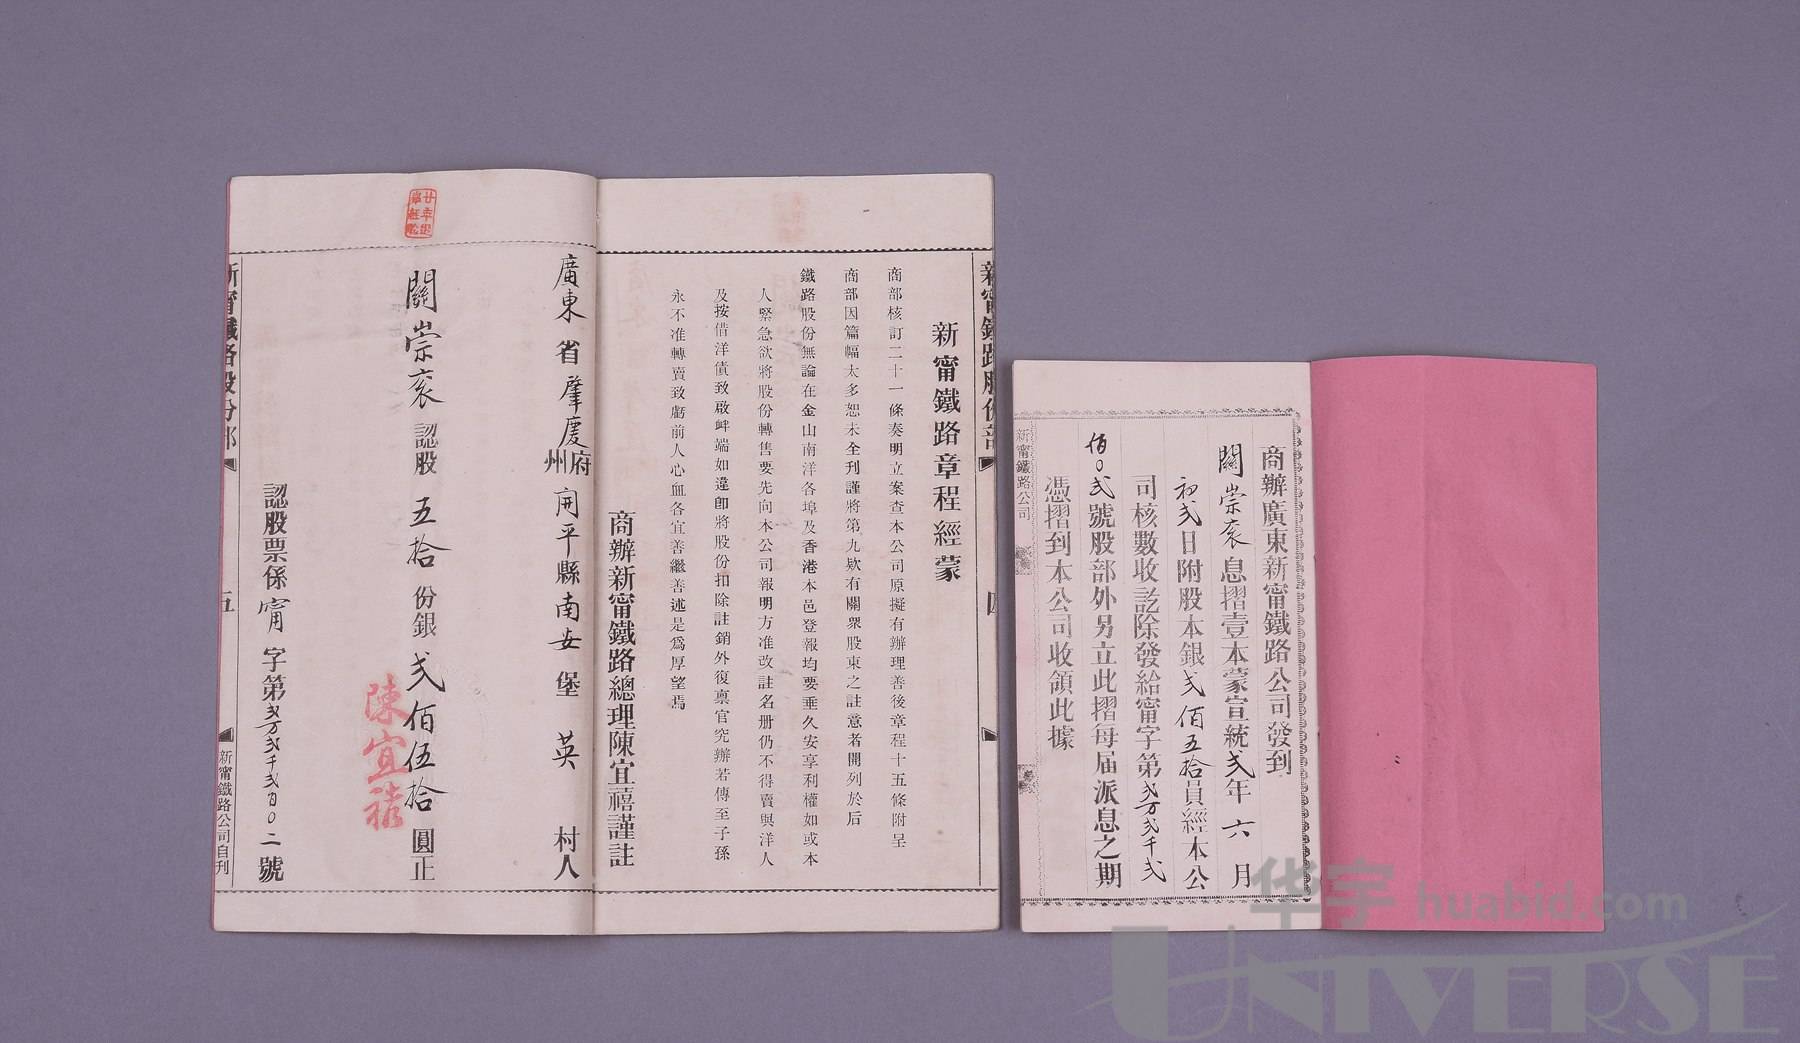 新甯鐵路股份部
四
新甯鐵路章程經蒙
商部核訂二十一條奏明立案查本公司原擬有辦理善後章程十五條附呈
商部因篇幅太多恕未全刊謹將第九欵有關衆股東之註意者開列於后
鐵路股份無論在金山南洋各埠及香港本邑登報均要垂久安享利權如或本
人緊急欲將股份轉售要先向本公司報明方准改註名册仍不得賣與洋人
及按借洋債致啟衅端如違卽將股份扣除註銷外復禀官究辦若傳至子孫
永不准轉賣致虧前人心血各宜善繼善述是爲厚望焉
商辦新甯鐵路總理陳宜禧謹註
廣東省肇慶府州開平縣南安堡英村人
關崇衮認股五拾份銀弍佰伍拾圓正
陳宜禧
認股票係甯字第弍万弍千弍百〇二號
新甯鐵路股份部
五
新甯鐵路公司自刊
商辦廣東新甯鐵路公司發到
關崇衮息摺壹本蒙宣統弍年六月
初弍日附股本銀弍佰五拾員經本公
司核數收訖除發給甯字第弍万弍千弍
佰〇弍號股部外另立此摺每届派息之期
憑摺到本公司收領此據
新甯鐵路公司
华宇 huabid.com
UNIVERSE